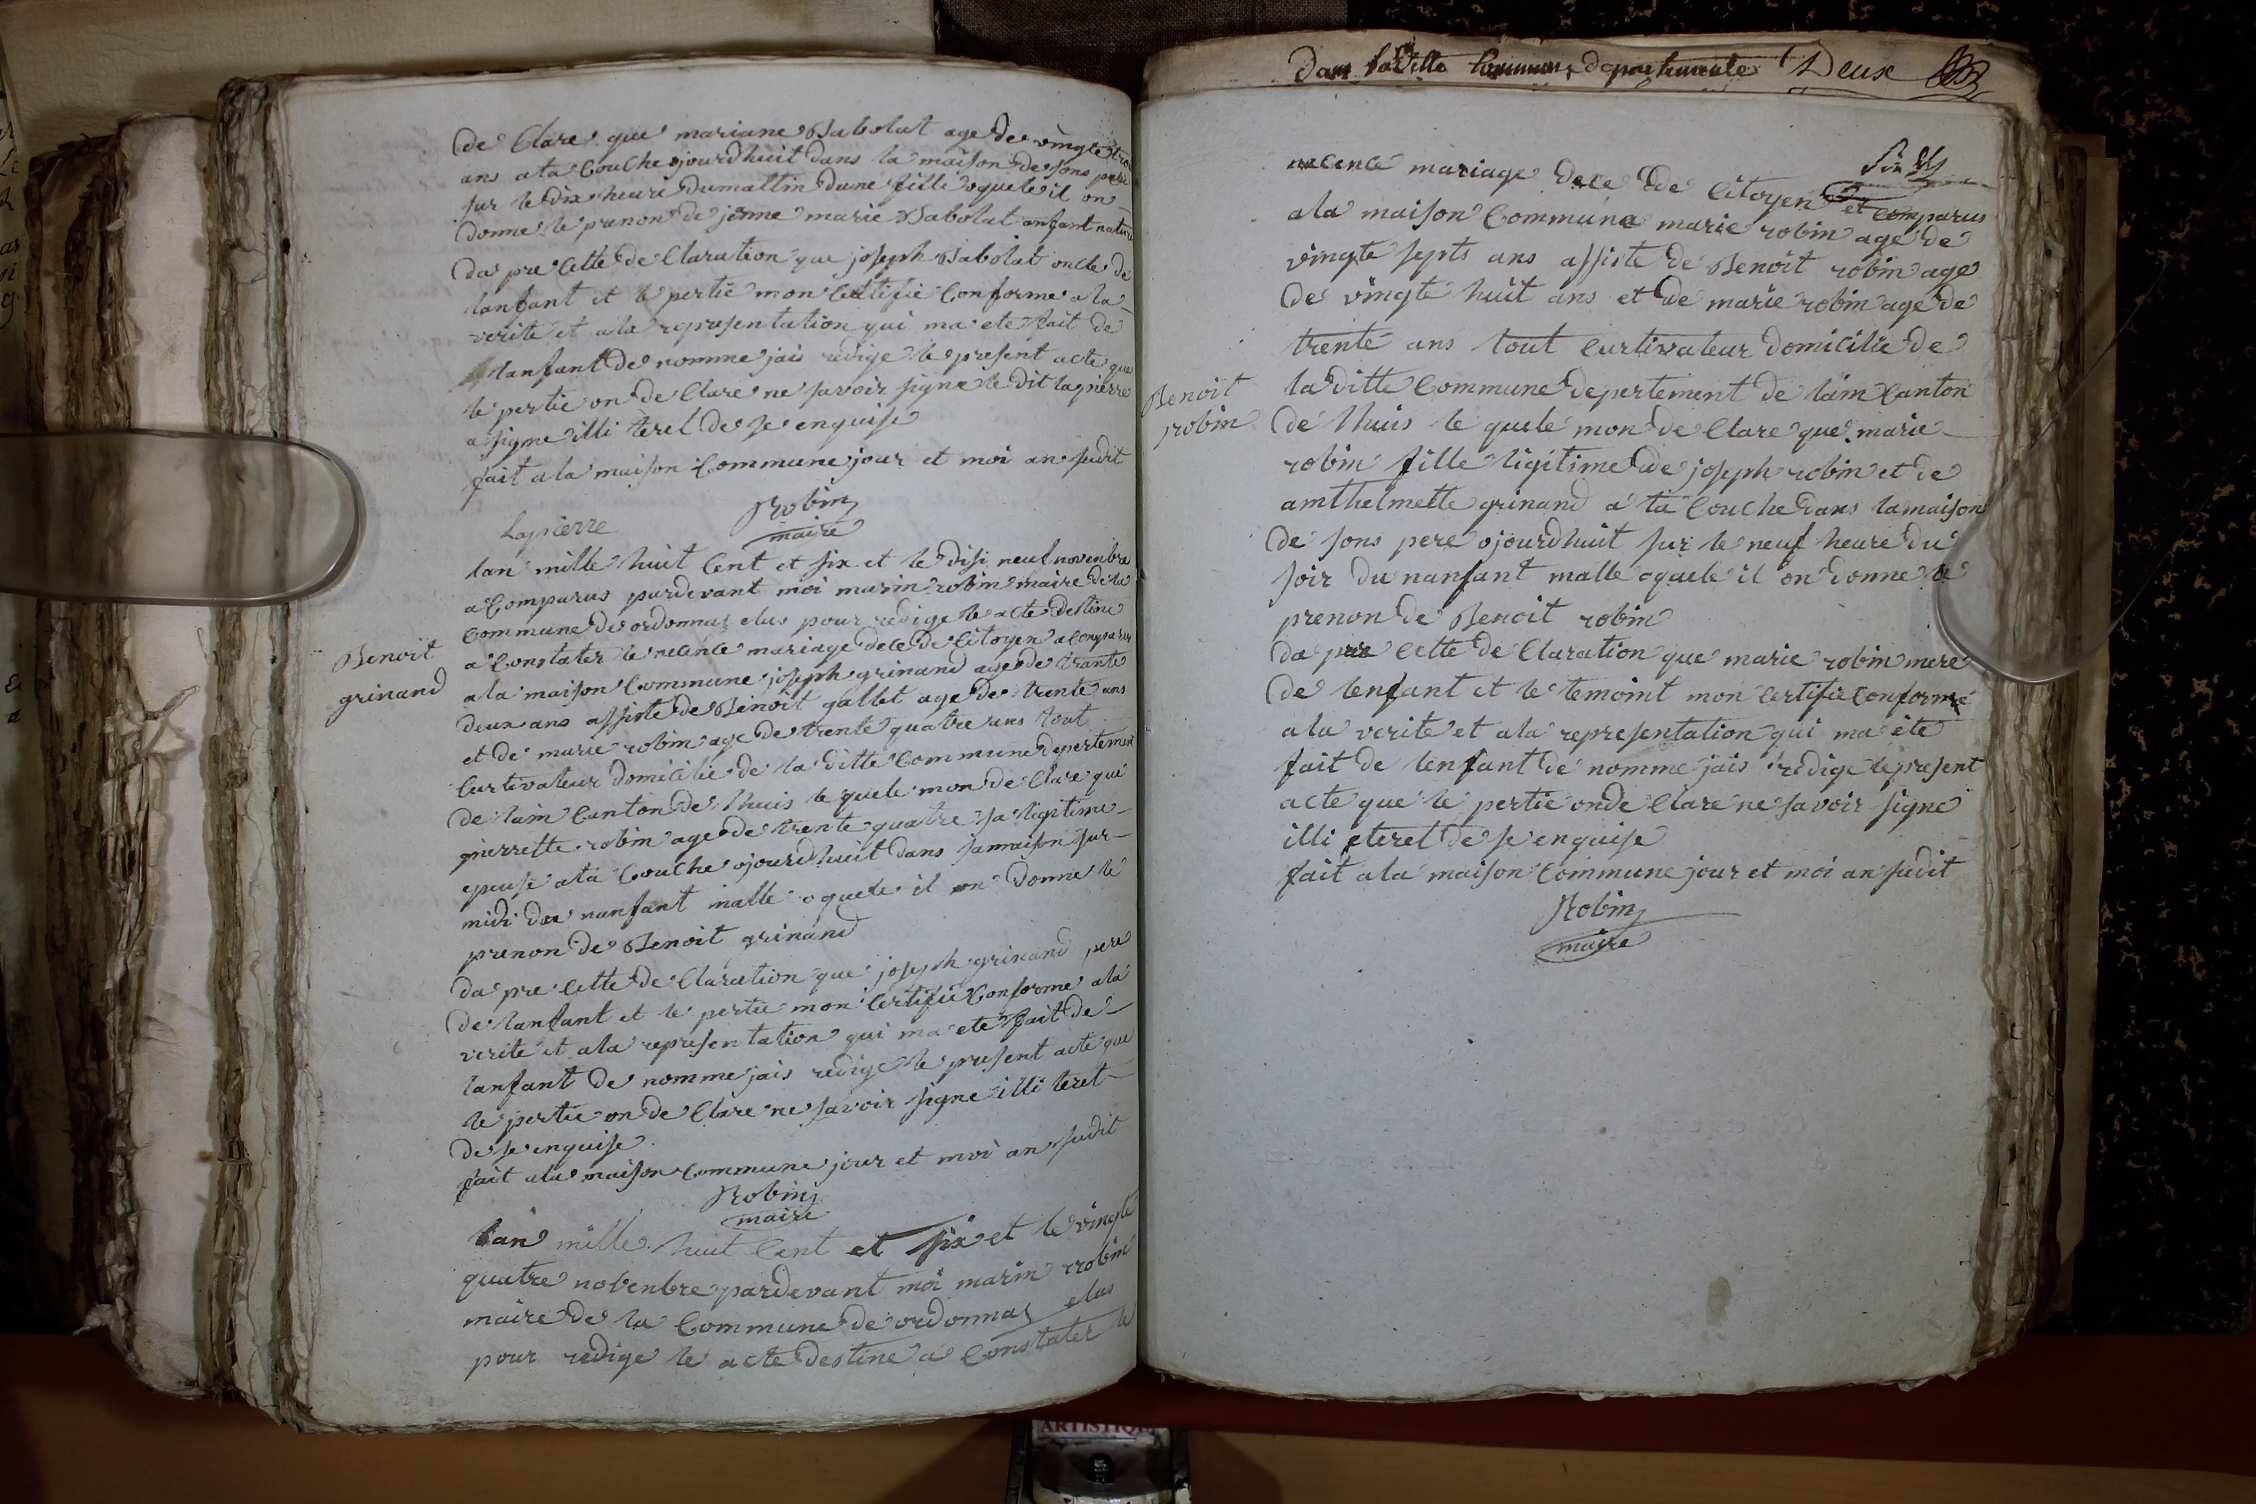 de Clare que mariane Sabolat age de vingte trois
ans a ta Couche ojourdhuit dans la maison de sons pere
sur le dix heure dumattin dune fille oquele il on
donne le prenon de jenne marie Sabolat anfant nature
da pre Cette de Claration que joseph Sabolat oncle de
lanfant et le pertie mon Certifie Conforme a la
verite et ala representation qui ma ete fait de
lanfant de nomme jais redige le present acte que
le pertie on de Clare ne savoir signe le dit lapierre
a signe illi teret de se enquise
fait ala maison Commune jour et moi an sudit
Lapierre
Robin
maire
Benoit
grinand
lan mille huit Cent et six et le disi neuf novenbre
a Comparus pardevant moi marin robin maire de la
Commune de ordonnaz elus pour redige le acte destine
a Constater le necence mariage dece de Citoyen a Comparus
ala maison Commune joseph grinand age de trante
deux ans assiste de Benoit gallet age de trente ans
et de marie robin age de trente quatre ans tout
Curtivateur domicilie de la ditte Commune depertement
de lain Canton de lhuis le quele mon de Clare que
pierrette robin age de trente quatre sa ligitime
epeuse a ta Couche ojourdhuit dans samaison sur
midi du nanfant malle oquele il on donne le
prenon de Benoit grinand
da pre Cette de Claration que joseph grinand pere
de lanfant et le pertie mon Certifie Conforme ala
verite et ala representation qui ma ete fait de
lanfant de nomme jais redige le present acte que
le pertie on de Clare ne savoir signe illi teret
de se enquise
fait ala maison Commune jour et moi an sudit
Robin
maire
lan mille huit Cent et six et le vingte
quatre novenbre pardevant moi marin robin
maire de la Commune de ordonnaz elus
pour redige le acte destine a Constater le
Dans la ditte Commune departemente Deux
necence mariage dece de Citoyen et Comparus
ala maison Commune marie robin age de
vingte septs ans assiste de Benoit robin age
de vingte huit ans et de marie robin age de
trente ans tout Curtivateur domicilie de
Benoit
robin
la ditte Commune depertement de lain Canton
de lhuis le quele mon de Clare que marie
robin fille ligitime de joseph robin et de
amthelmette grinand a ta Couche dans la maison
de sons pere ojourdhuit sur le neuf heure du
soir du nanfant malle oquele il on donne le
prenon de Benoit robin
da pre Cette de Claration que marie robin mere
de lenfant et le temoint mon Certifie Conforme
ala verite et ala representation qui ma ete
fait de lenfant de nomme jais redige le present
acte que le pertie on de Clare ne savoir signe
illi eteret de se enquise
fait ala maison Commune jour et moi an sudit
Robin
maire
ARTISTIQU